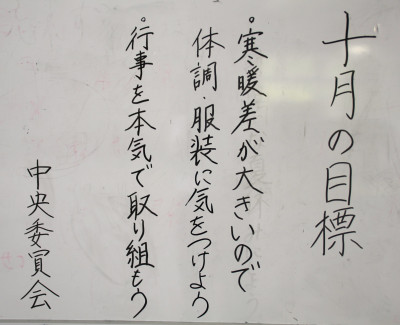 十月の目標
・寒暖差が大きいので
体調・服装に気をつけよう
・行事を本気で取り組もう
中央委員会